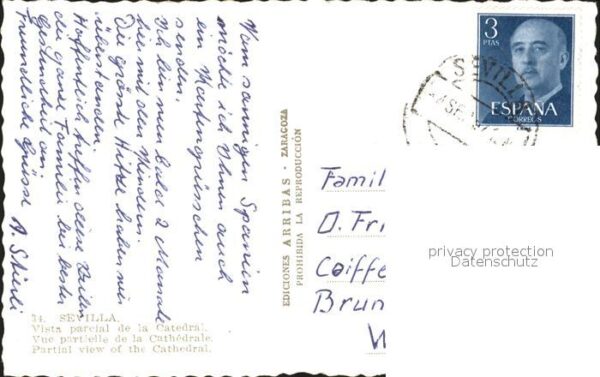 Vom sonnigen Spanien
möchte ich Ihnen auch
ein Kartengrüsschen
senden.
Ich bin nun bald 2 Monate
hier mit den Kindern.
Die grösste Hitze haben wir
überstanden.
Hoffentlich treffen diese Zeilen
die ganze Familie bei bester
Gesundheit an.
Freundliche Grüsse
34. SEVILLA.
Vista parcial de la Catedral.
Vue partielle de la Cathédrale.
Partial view of the Cathedral.
EDICIONES ARRIBAS - ZARAGOZA
PROHIBIDA LA REPRODUCCIÓN
3
PTAS
ESPAÑA
CORREOS
SEVILLA
Famil
O. Fri
Coiffe
Brun
W
privacy protection
Datenschutz